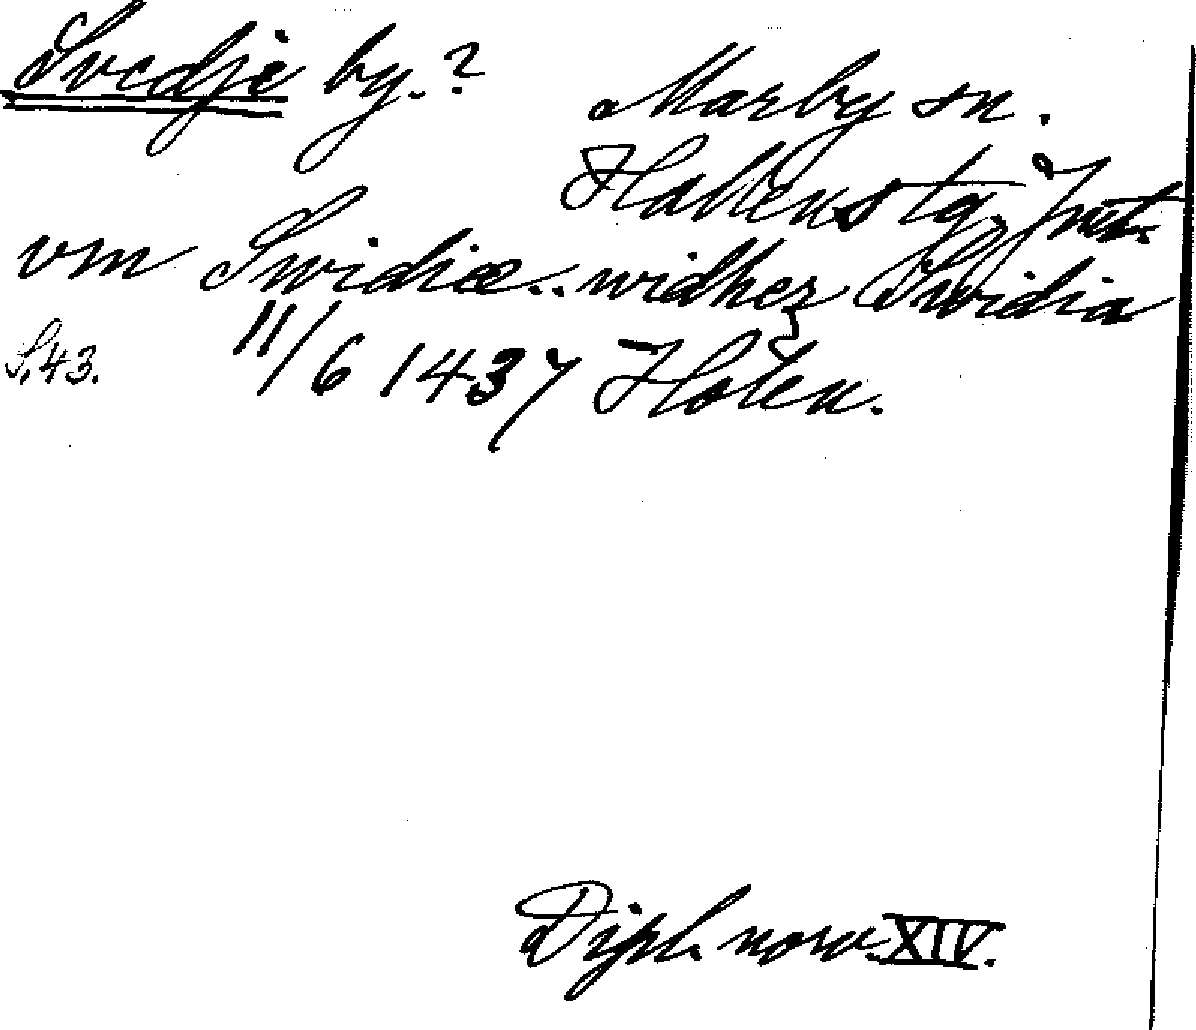 Svedje by.?
Marby sn.
Hallens tg, Jmt.
vm Swidiæ.. widher Swidia
S.43. 11/6 1437 Holen.
Dipl. norv. XIV.